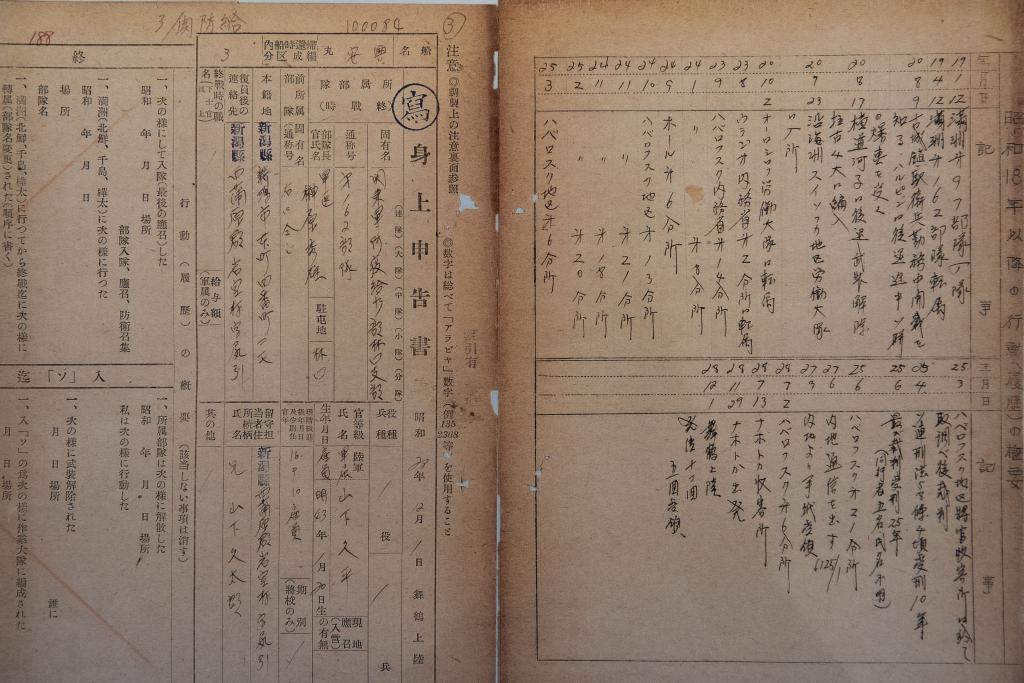 昭和18年以降の行動(履歴)の概要
年 月 日
記事
19 1 12 満洲第97部隊入隊
19 4 12 満洲第162部隊転属
20 8 9
知る、ハルピンに後退途中ソ聯
の爆撃を受く
20 8 17 横道河子に後退武装解除
拉古4大に編入
20 9 23 沿海洲スイソフカ地区労働大隊
に入所
20 10 2 オーロンコフ労働大隊に転属
23 8 ウラジオ内務省第2分所に転属
23 9 ハバロフスク内務省第14分所
24 4 〃 第8分所
24 6 ホール第6分所
24 10 9 ハバロフスク地区第13分所
24 11 〃 第21分所
24 11 〃 第18分所
25 1 2 〃 第20分所
25 3 ハバロフスク地区第6分所
年 月 日
記事
25 3 ハバロフスク地区将官収容所に於て
取調べ後裁判
25 4 ソ連刑法58条4項受刑10年
25 6 最后裁判受刑25年
(同行者五名氏名不明)
25 6 ハバロフスク第21分所
27 6 内地通信を出す
27 9 内地より手紙受領
28 7 2 ハバロフスク第6分所
28 7 13 ナホトカ収容所
28 11 29 ナホトカ出発
28 12 1 舞鶴上陸
発信十ヶ回
五回受領
3/個防給
100084
③
188
注意 ◎調製上の注意裏面参照 ◎数字は総べて「アラビヤ」数字(例135 2368等)を使用すること
索引有
寫
身上申告書
昭和28年12月1日 舞鶴上陸
船名 興安丸
帰還時船内編成区分 3
所属部隊(終戦時)
固有名 (連隊)(大隊)(中隊)(小隊)(分隊)
関東軍野戦貨物廠林口支廠
通称号 第162部隊
部隊長官氏名 榊原秀雄
駐屯地 林口
前所属部隊
固有名
(通称号)
本籍地 新潟縣 新潟市東町四番町
復員後の連絡先 新潟縣 西蒲原郡岩室村字夏引
終戦時の職名
給与額(軍属のみ)
役種 / 役
兵種 / 兵
官等級 陸軍 軍属
氏名 山下久平
生年月日 明43年1月20日生
16.9.10 雇員
期別(将校のみ) /
現地應召(入営)の有無
留守担当者住所 新潟縣 西蒲原郡岩室村字夏引
氏名続柄 兄 山下久太郎
其の他
行動(履歴)の概要(該当しない事項は消す)
終
一、次の様にして入隊(最後の應召)した
昭和 年 月 日 場所
部隊入隊、應召、防衛召集
一、満洲(北鮮、千島、樺太)に次の様に行つた
昭和 年 月 日
場所
部隊名
一、満洲(北鮮、千島、樺太)に行つてから終戦迄に次の様に
轉属(部隊名変更)された(順序に書く)
月 日
迄「ソ」入
一、所属部隊は次の様に解散した
昭和 年 月 日 場所
私は次の様に行動した
一、次の様に武装解除された
月 日 場所 誰に
一、入「ソ」の爲次の様に作業大隊に編成された
月 日 場所